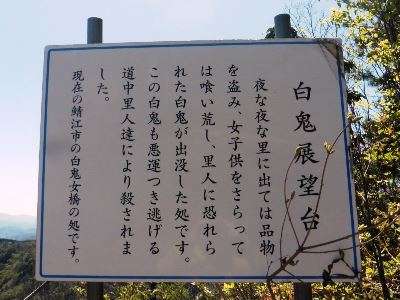 白鬼展望台
夜な夜な里に出ては品物
を盗み、女子供をさらって
は喰い荒し、里人に恐れら
れた白鬼が出没した処です。
この白鬼も悪運つき逃げる
道中里人達により殺されま
した。
現在の鯖江市の白鬼女橋の処です。